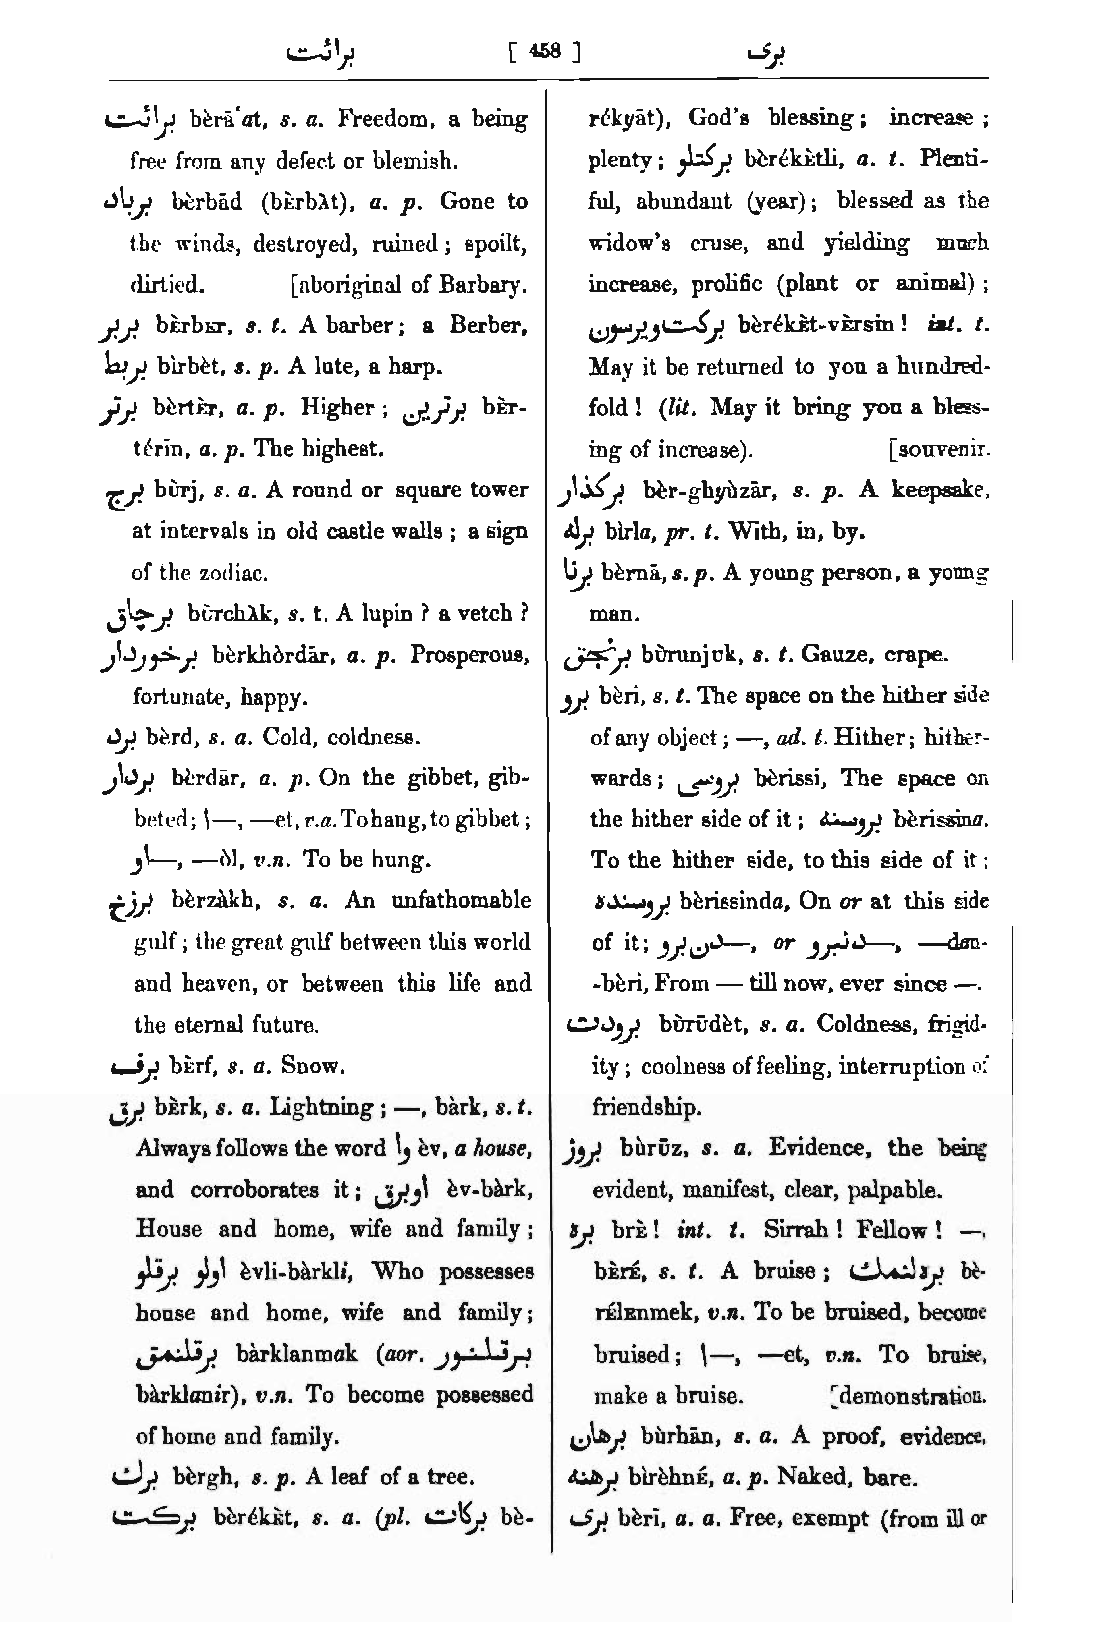 برائت [ 458 ] بری
برائت bèrā'at, s. a. Freedom, a being
free from any defect or blemish.
برباد bèrbād (bÈrbλt), a. p. Gone to
the winds, destroyed, ruined; spoilt,
dirtied. [aboriginal of Barbary.
بربر bÈrbER, s. t. A barber; a Berber,
بربط bìrbèt, s. p. A lute, a harp.
برتر bèrtÈr, a. p. Higher; برترین bÈr-
térīn, a. p. The highest.
برج bùrj, s. a. A round or square tower
at intervals in old castle walls; a sign
of the zodiac.
برچاق būrchλk, s. t. A lupin? a vetch?
برخوردار bèrkhòrdār, a. p. Prosperous,
fortunate, happy.
برد bèrd, s. a. Cold, coldness.
بردار bèrdār, a. p. On the gibbet, gib-
beted; ا—, —et, v.a. To hang, to gibbet;
او—, —òl, v.n. To be hung.
برزخ bèrzàkh, s. a. An unfathomable
gulf; the great gulf between this world
and heaven, or between this life and
the eternal future.
برف bÈrf, s. a. Snow.
برق bÈrk, s. a. Lightning; —, bàrk, s. t.
Always follows the word او èv, a house,
and corroborates it; اوبرق èv-bàrk,
House and home, wife and family;
اولو برقلو èvli-bàrkli, Who possesses
house and home, wife and family;
برقلنمق bàrklanmak (aor. برقلنور
bàrklanir), v.n. To become possessed
of home and family.
برك bèrgh, s. p. A leaf of a tree.
بركت bèrékÈt, s. a. (pl. بركات bè-
rékyāt), God's blessing; increase;
plenty; بركتلو bèrékÈtli, a. t. Plenti-
ful, abundant (year); blessed as the
widow's cruse, and yielding much
increase, prolific (plant or animal);
بركت‌ویرسون bèrékÈt-vÈrsin! int. t.
May it be returned to you a hundred-
fold! (lit. May it bring you a bless-
ing of increase). [souvenir.
برکذار bèr-ghyùzār, s. p. A keepsake,
برله bìrla, pr. t. With, in, by.
برنا bèrnā, s. p. A young person, a young
man.
برنجق bùrunjuk, s. t. Gauze, crape.
برو bèri, s. t. The space on the hither side
of any object; —, ad. t. Hither; hither-
wards; بروسی bèrissi, The space on
the hither side of it; بروسنه bèrissina,
To the hither side, to this side of it;
بروسنده bèrissinda, On or at this side
of it; دن برو—, or دنبرو—, —dan-
-bèri, From — till now, ever since —.
برودت bùrūdèt, s. a. Coldness, frigid-
ity; coolness of feeling, interruption of
friendship.
بروز bùrūz, s. a. Evidence, the being
evident, manifest, clear, palpable.
بره brÈ! int. t. Sirrah! Fellow! —,
bÈrÉ, s. t. A bruise; بره‌لنمك bè-
rÉlEnmek, v.n. To be bruised, become
bruised; ا—, —et, v.n. To bruise,
make a bruise. [demonstration.
برهان bùrhān, s. a. A proof, evidence,
برهنه bìrèhnÉ, a. p. Naked, bare.
بری bèrī, a. a. Free, exempt (from ill or